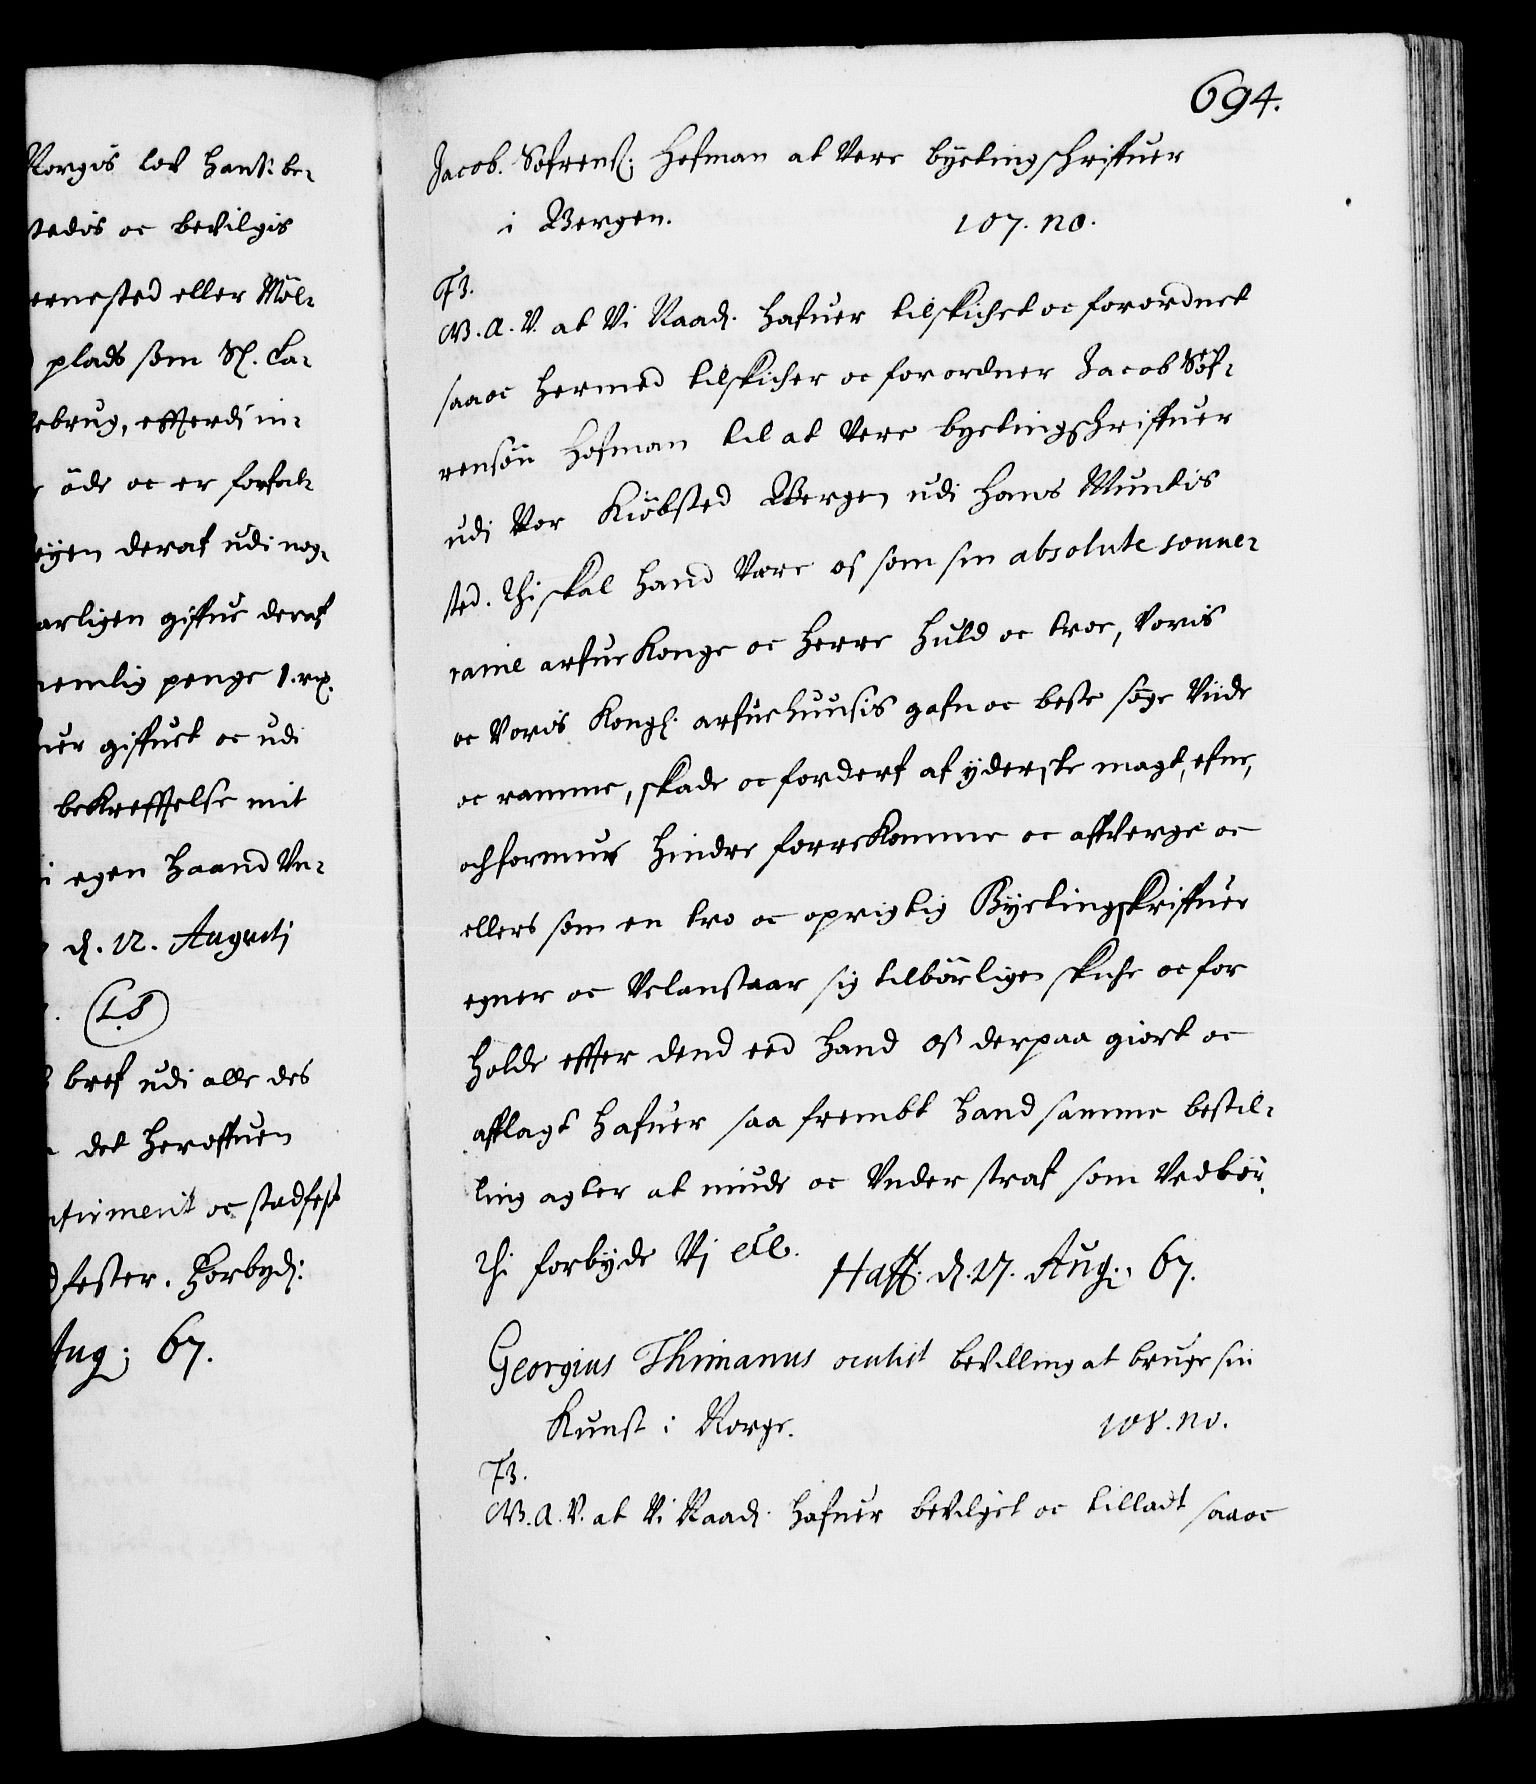 Norgis lov hans: be-
stedis oc bevilgis
ernested eller Møl-
plads som Sl. La-
brug, efterdj in-
øde oc er forfal-
eyen deraf udi nog-
aarligen giffue deraf
nemlig penge 1. rix
uer giffuet oc udi
bekrefftelse mit
i egen haand Un-
d. 12. Augusti
(L.S)
bref udi alle des
det heroffuen
ntiment oc stadfest
dfester. Forbyd:
Aug: 67.
694.
Jacob. Søfrens: Hofman at Vere byetingschriffuer
i Bergen. 107. no.
F3.
W. A. V. at Vi Naad. hafuer tilskichet oc forordnet
saaoc hermed tilskicher oc forordner Jacob Søf-
rensøn Hofman til at Vere byetingschriffuer
udi Vor Kiøbsted Bergen udi Hans Muntis
sted. Thi skal hand Være os som sin absolute souve-
raine arfue Konge oc herre huld oc troe, Voris
oc Voris Kongl. arfuehuusis gafn oc beste søge Viide
oc ramme, skade oc forderf af yderste magt, efne,
och formue hindre forrekomme oc affverge oc
ellers som en tro oc oprigtig Byetingskriffuer
egner oc Velanstaar sig tilbørligen skiche oc for
holde effter dend eed hand os derpaa giort oc
afflagt hafuer saa frembt hand samme bestil-
ling agter at niude oc Under straf som Vedbør.
Thi forbyde Vj etc. Haff: d. 17. Aug: 67.
Georgius Thimanus oculist bevilling at bruge sin
Kunst i Norge. 108. no.
F3.
W. A. V. at Vi Naad. hafuer bevilget oc tilladt saaoc